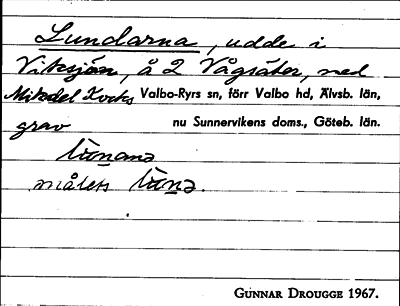 Lundarna, udde i
Viksjön, å 2 Vågsäter, med
Mikael Korks Valbo-Ryrs sn, förr Valbo hd, Älvsb. län,
grav nu Sunnervikens doms., Göteb. län.
målets
GUNNAR DROUGGE 1967.